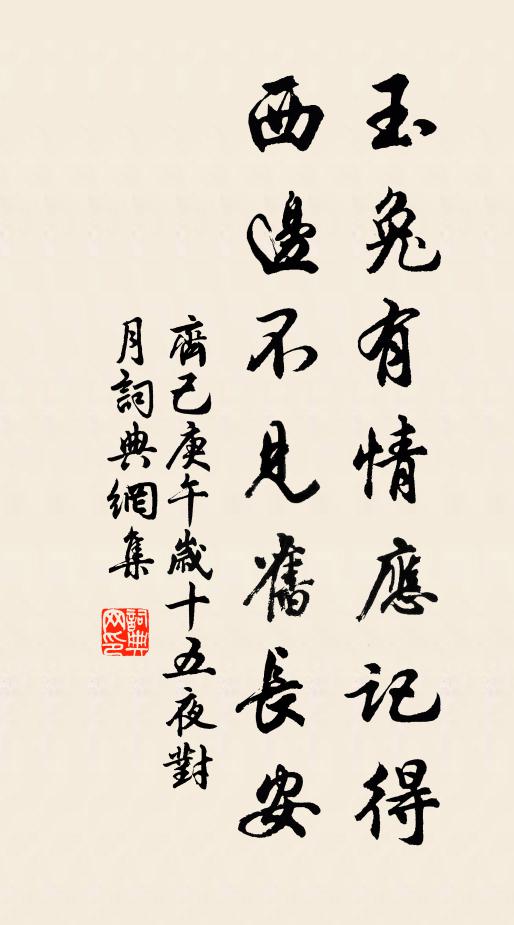 玉兔有情應記得
西邊不見舊長安
齊己庚午歲十五夜對
月詞典網集
詞典
网印